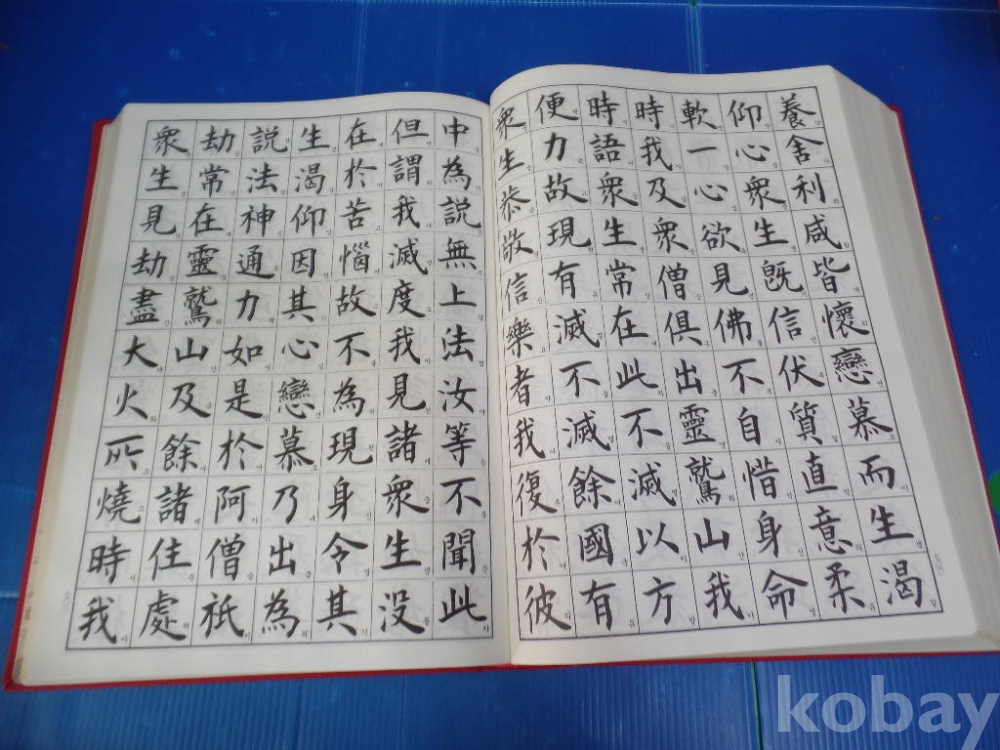 養舍利咸皆懷戀慕而生渴
仰心衆生既信伏質直意柔
軟一心欲見佛不自惜身命
時我及衆僧俱出靈鷲山我
時語衆生常在此不滅以方
便力故現有滅不滅餘國有
衆生恭敬信樂者我復於彼
中為説無上法汝等不聞此
但謂我滅度我見諸衆生没
在於苦惱故不為現身令其
生渴仰因其心戀慕乃出為
説法神通力如是於阿僧祇
劫常在靈鷲山及餘諸住處
衆生見劫盡大火所燒時我
kobay